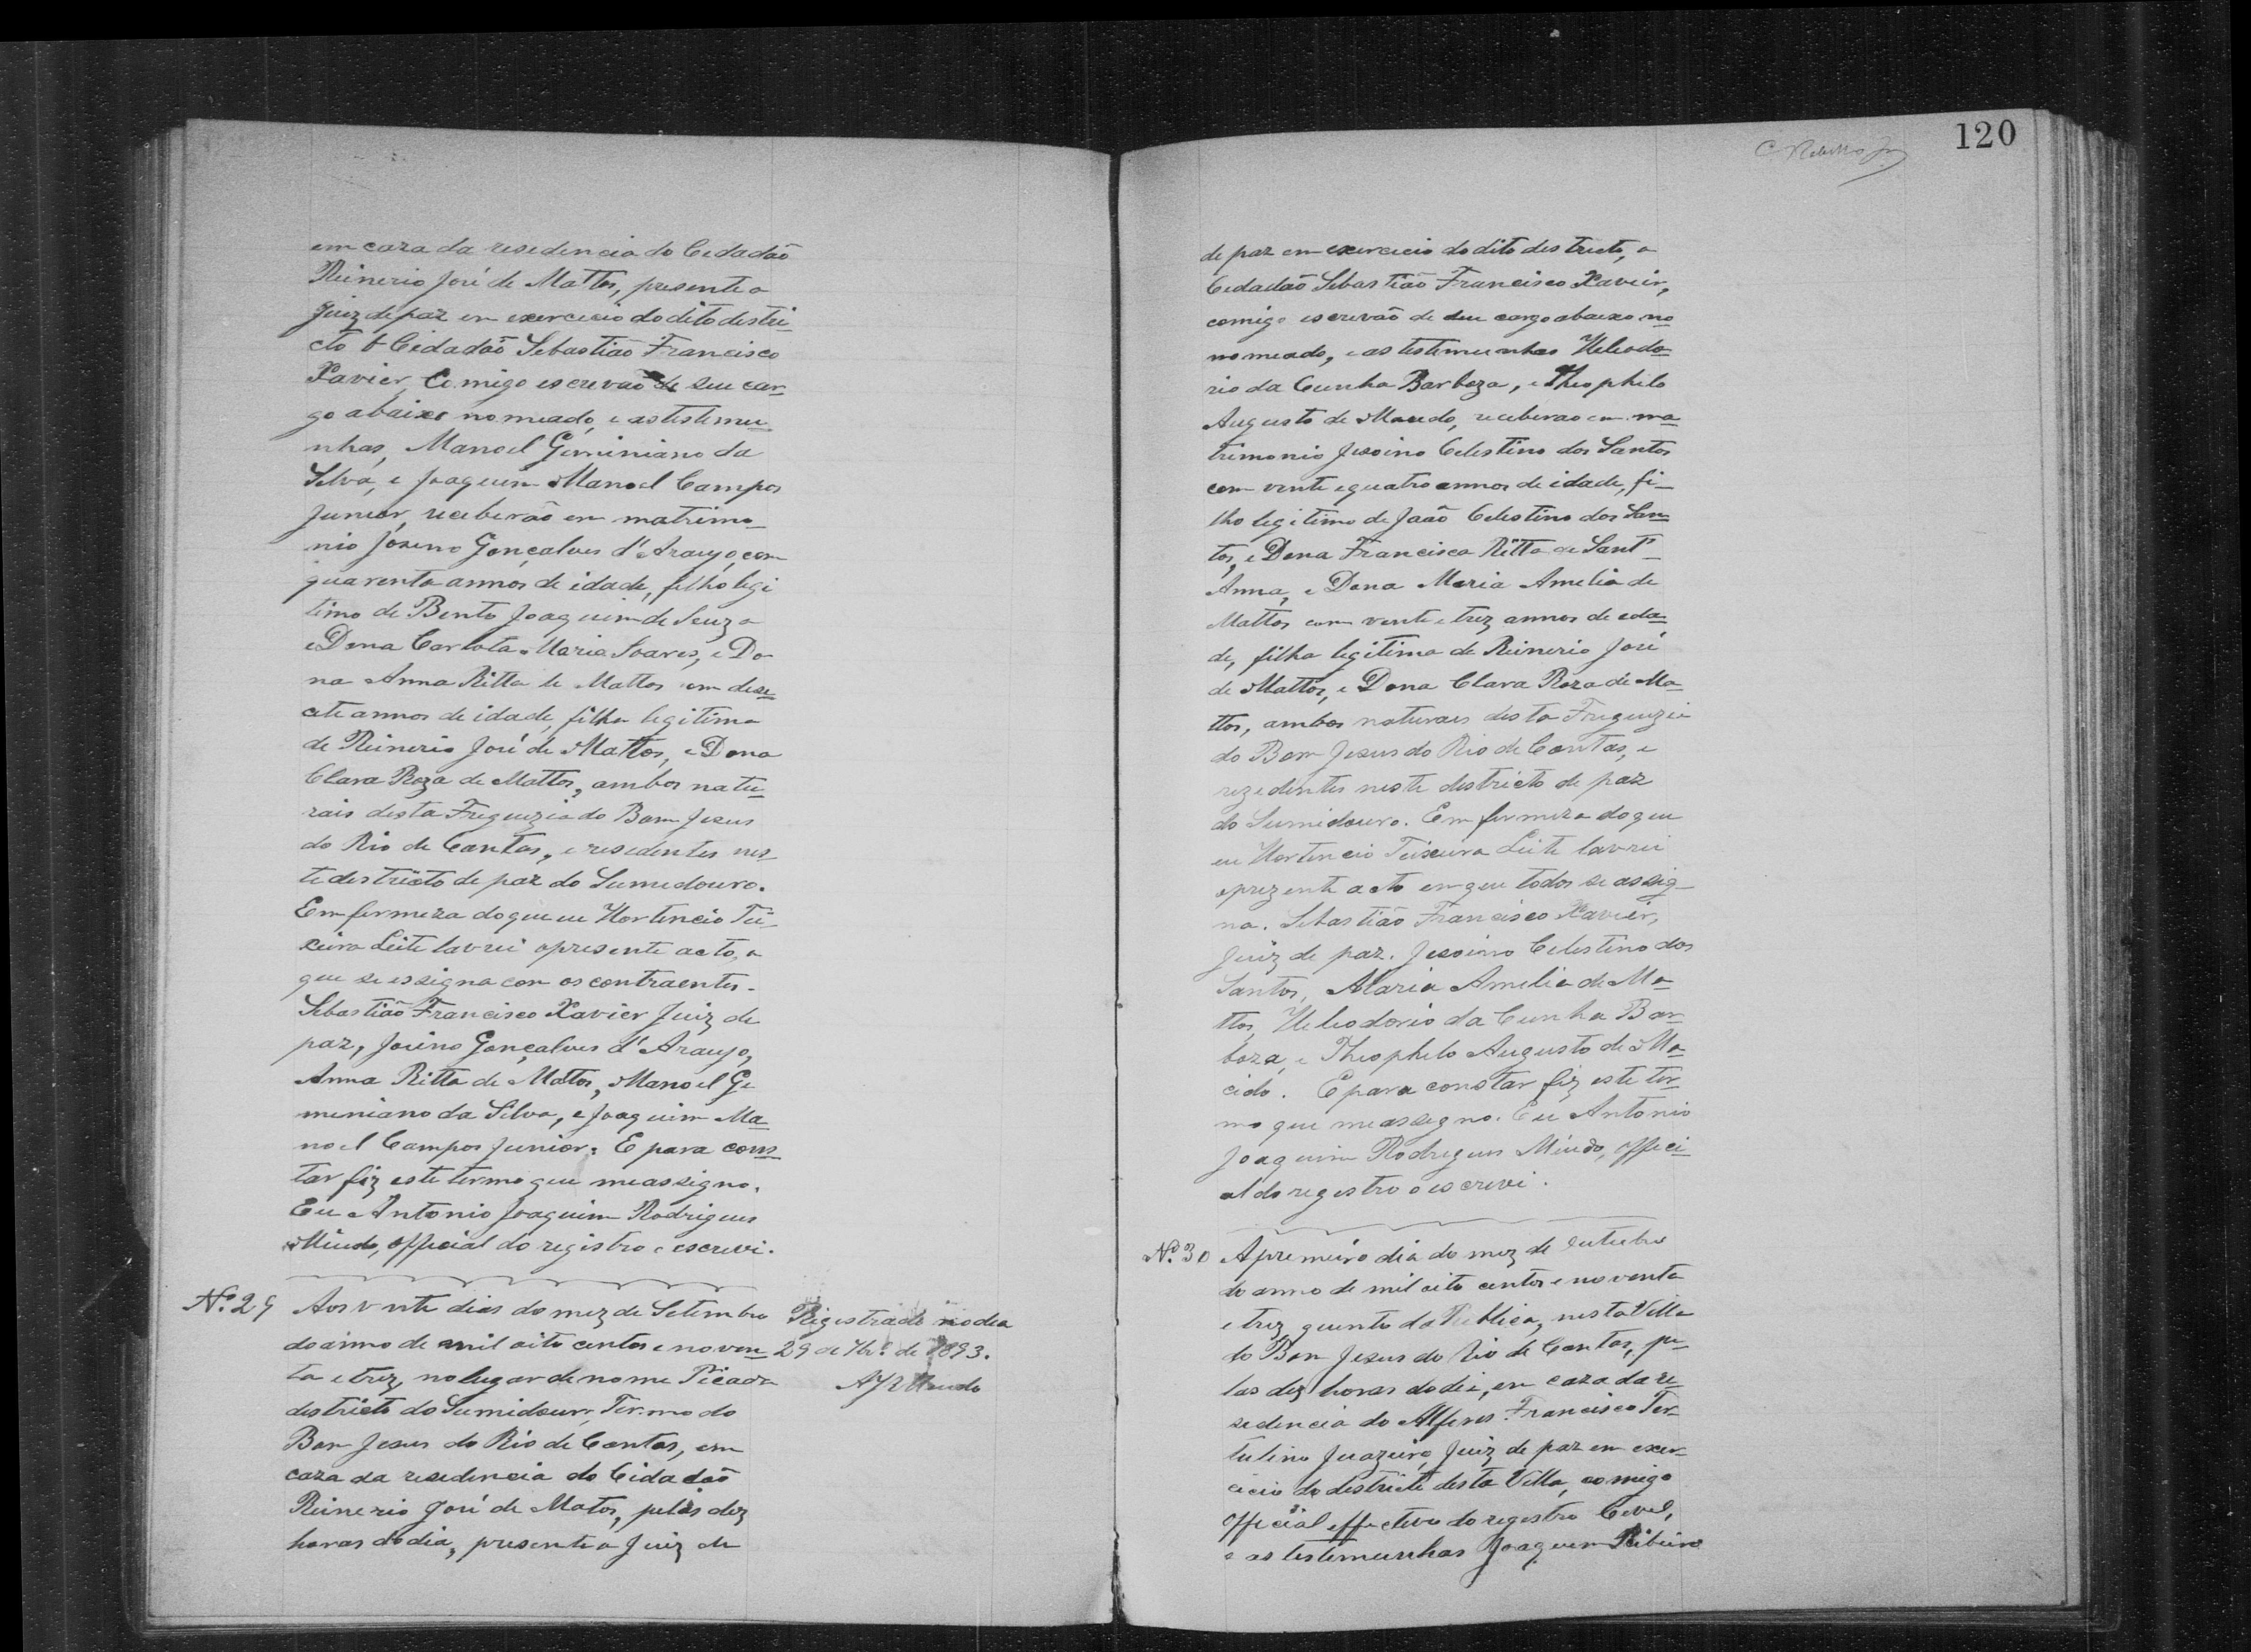 120
em caza da residencia do Cidadão
Reinerio José de Mattos, presente o
Juiz de paz em exercicio do dito destri-
cto o Cidadão Sebastião Francisco
Xavier, Comigo escrevão de seu car-
go abaixo nomeado, e as testemu-
nhas, Manoel Giminiano da
Silva, e Joaquim Manoel Campos
Junior, receberão em matrimo-
nio Josino Gonçalves d'Araujo, com
quarenta annos de idade, filho legi
timo de Bento Joaquim de Souza
e Dona Carlota Maria Soares, e Do-
na Anna Ritta de Mattos com deze-
cete annos de idade, filha legitima
de Reinerio José de Mattos, e Dona
Clara Roza de Mattos, ambos natu-
rais desta Freguezia do Bom Jesus
do Rio de Contas, e residentes nes-
te destricto de paz do Sumedouro.
Em firmeza do que eu Hortencio Tei-
xeira Leite lavrei o presente acto, o
que se assigna com os contraentes.
Sebastião Francisco Xavier Juiz de
paz, Josino Gonçalves d'Araujo,
Anna Ritta de Mattos, Manoel Ge-
miniano da Silva, e Joaquim Ma-
noel Campos Junior. E para cons-
tar fiz este termo que me assigno.
Eu Antonio Joaquim Rodrigues
Miudo, official do registro o escrevi.
Nº. 29 Aos vente dias do mez de Setembro
do anno de mil oito centos e noven-
ta e trez, no lugar de nome Picada
destricto do Sumidouro, Termo do
Bom Jesus do Rio de Contas, em
caza da residencia do Cidadão
Reinerio José de Matos, pelas dez
horas do dia, presente o Juiz de
Registrado no dia
29 de 7brº. de 1893.
AJRMiudo
de paz em exercicio do dito destricto, o
Cedadão Sebastião Francisco Xavier,
comigo escrevão de seu cargo abaixo no-
nomeado, e as testemunhas Heliodo-
rio da Cunha Barboza, e Theophilo
Augusto de Macedo, receberão em ma-
trimonio Jesoino Celestino dos Santos
com vente e quatro annos de idade, fi-
lho legitimo de João Celestino dos San-
tos, e Dona Francisca Ritta de Sant'-
Anna, e Dona Maria Amelia de
Mattos com vente e trez annos de eda-
de, filha legitima de Reinerio José
de Mattos, e Dona Clara Roza de Ma-
ttos, ambos naturaes desta Freguezia
do Bom Jesus do Rio de Contas, e
rezedentes neste districto de paz
do Sumidouro. Em firmeza do que
eu Hortencio Teixeira Leite lavrei
o prezente acto em que todos se assig-
na. Sebastião Francisco Xavier,
Juiz de paz. Jesoino Celestino dos
Santos, Maria Amelia de Ma-
ttos, Heliodorio da Cunha Bar-
boza, e Theophilo Augusto de Ma-
cedo. E para constar fiz este ter-
mo que me assigno. Eu Antonio
Joaquim Rodrigues Miudo, offici-
al do registro o escrevi.
Nº. 30 A premeiro dia do mez de Outubro
do anno de mil oito centos e noventa
e trez, quinto da Publica, nesta Villa
do Bom Jesus do Rio de Contas, pe-
las dez horas do dia, em caza da re-
sedencia do Alferes Francisco Ter-
tulino Juazeiro, Juiz de paz em exer-
cicio do destricto desta Villa, comigo
official effectivo do registro Cevel,
e as testemunhas Joaquim Ribeiro